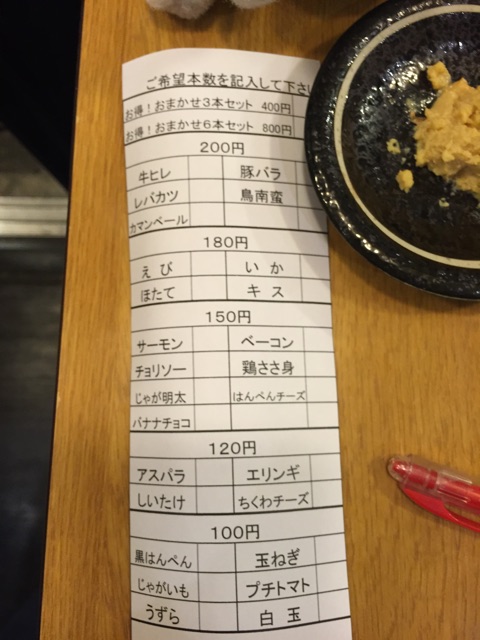 ご希望本数を記入して下さい
お得！おまかせ3本セット 400円
お得！おまかせ6本セット 800円
200円
牛ヒレ 豚バラ
レバカツ 鳥南蛮
カマンベール
180円
えび いか
ほたて キス
150円
サーモン ベーコン
チョリソー 鶏ささ身
じゃが明太 はんぺんチーズ
バナナチョコ
120円
アスパラ エリンギ
しいたけ ちくわチーズ
100円
黒はんぺん 玉ねぎ
じゃがいも プチトマト
うずら 白玉